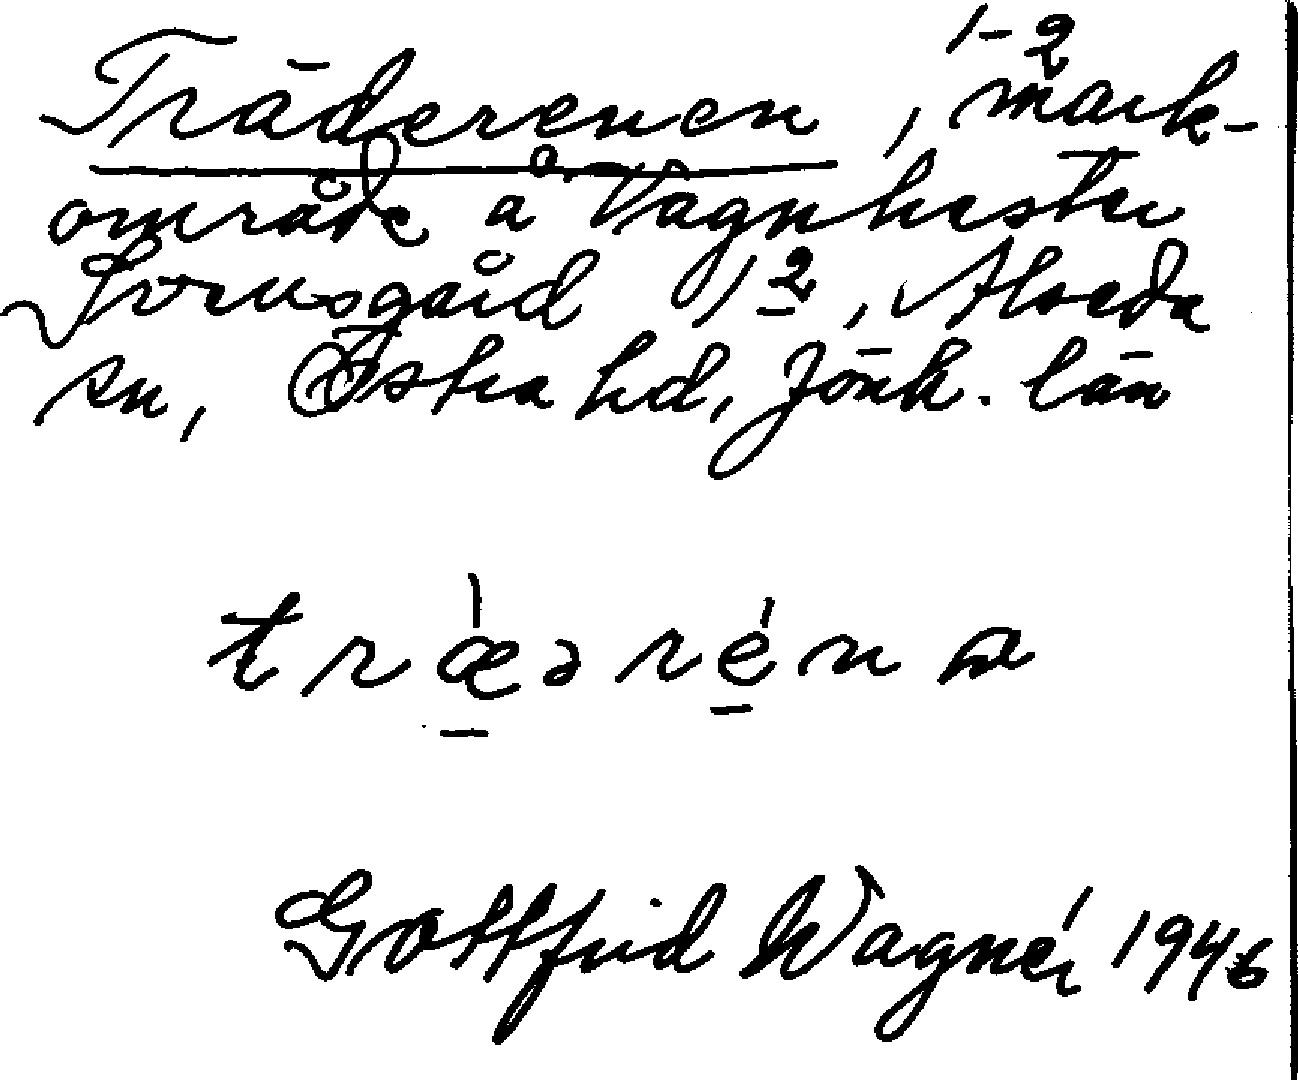 Träderenen, 1-2 mark-
område å Vagnhester
Svensgård 1 2, Alseda
sn, Östra hd, Jönk. län
træərén a
Gottfrid Wagnér 1946